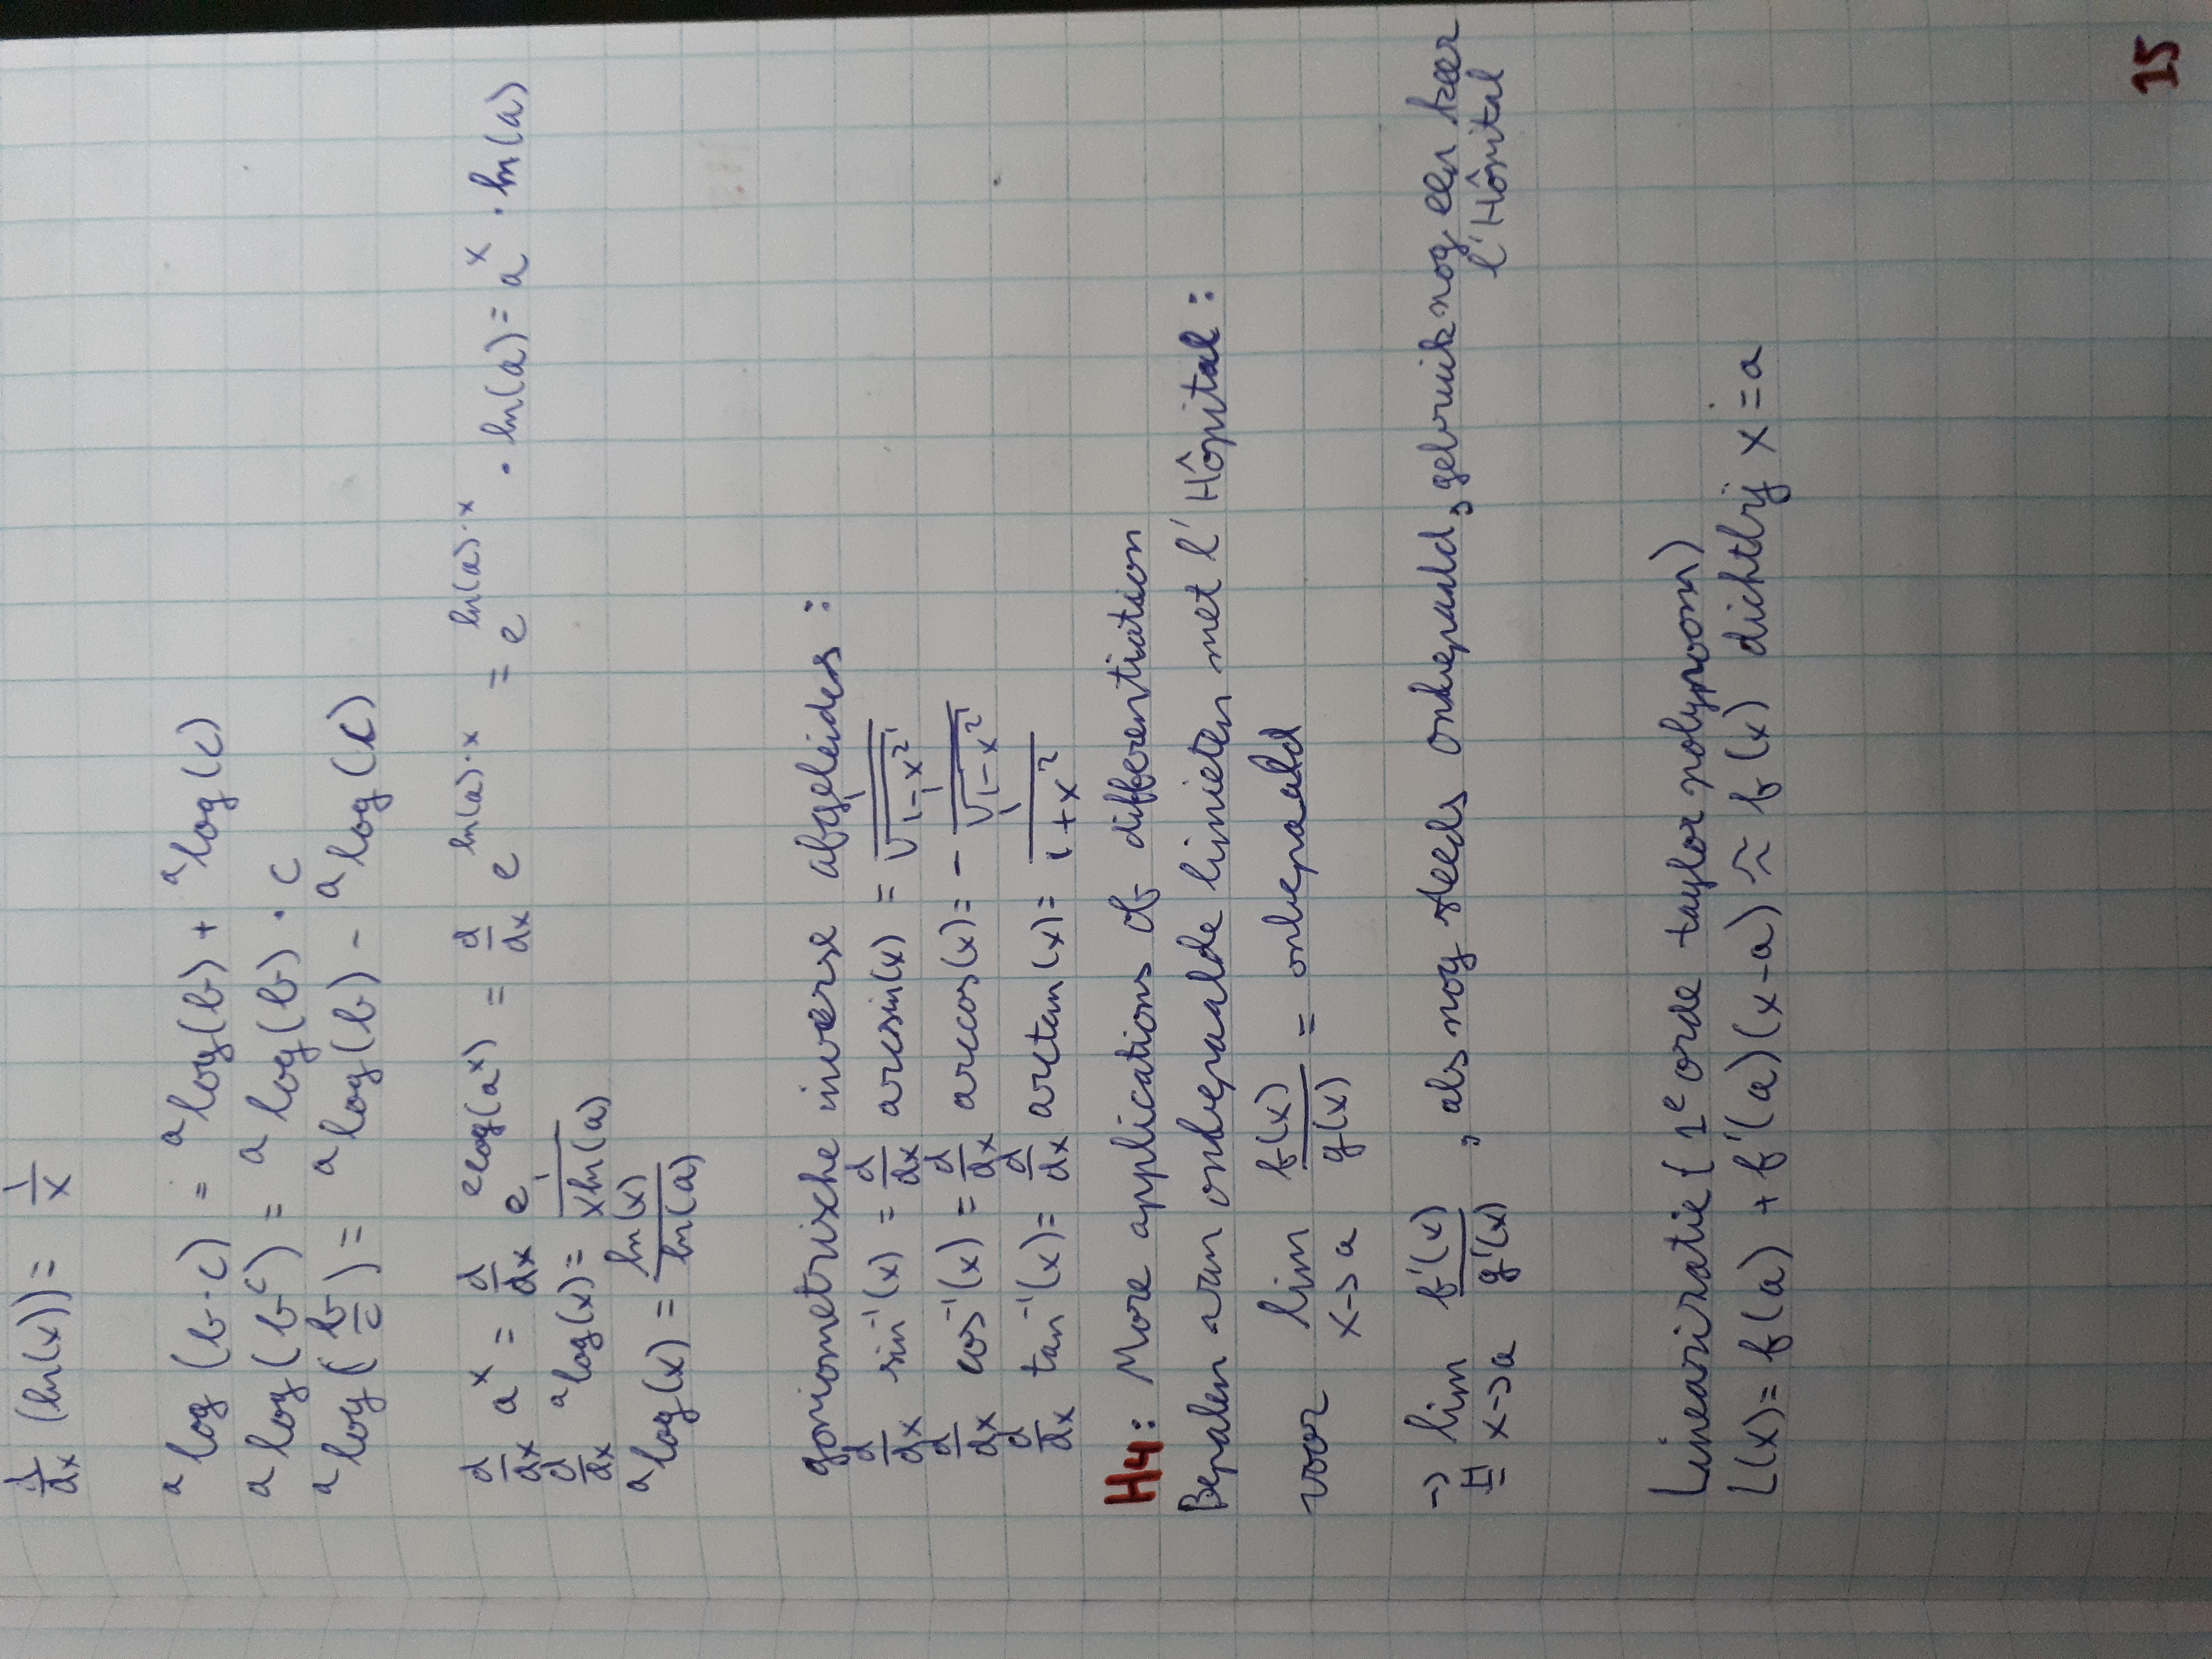 d/dx (ln(x)) = 1/x
ᵃlog(b·c) = ᵃlog(b) + ᵃlog(c)
ᵃlog(bᶜ) = ᵃlog(b) · c
ᵃlog(b/c) = ᵃlog(b) - ᵃlog(c)
d/dx aˣ = d/dx e^(ᵉlog(aˣ)) = d/dx e^(ln(a)·x) = e^(ln(a)·x) · ln(a) = aˣ · ln(a)
d/dx ᵃlog(x) = 1/(x ln(a))
ᵃlog(x) = ln(x)/ln(a)
goniometrische inverse afgeleides :
d/dx sin⁻¹(x) = d/dx arcsin(x) = 1/√(1-x²)
d/dx cos⁻¹(x) = d/dx arccos(x) = - 1/√(1-x²)
d/dx tan⁻¹(x) = d/dx arctan(x) = 1/(1+x²)
H4: More applications of differentiation
Bepalen van onbepaalde limieten met l'Hôpital :
voor lim x->a f(x)/g(x) = onbepaald
-> H= lim x->a f'(x)/g'(x) , als nog steeds onbepaald, gebruik nog een keer
l'Hôpital
Linearizatie (1ᵉ orde taylor polynoom)
L(x) = f(a) + f'(a)(x-a) ≈ f(x) dichtbij x=a
15